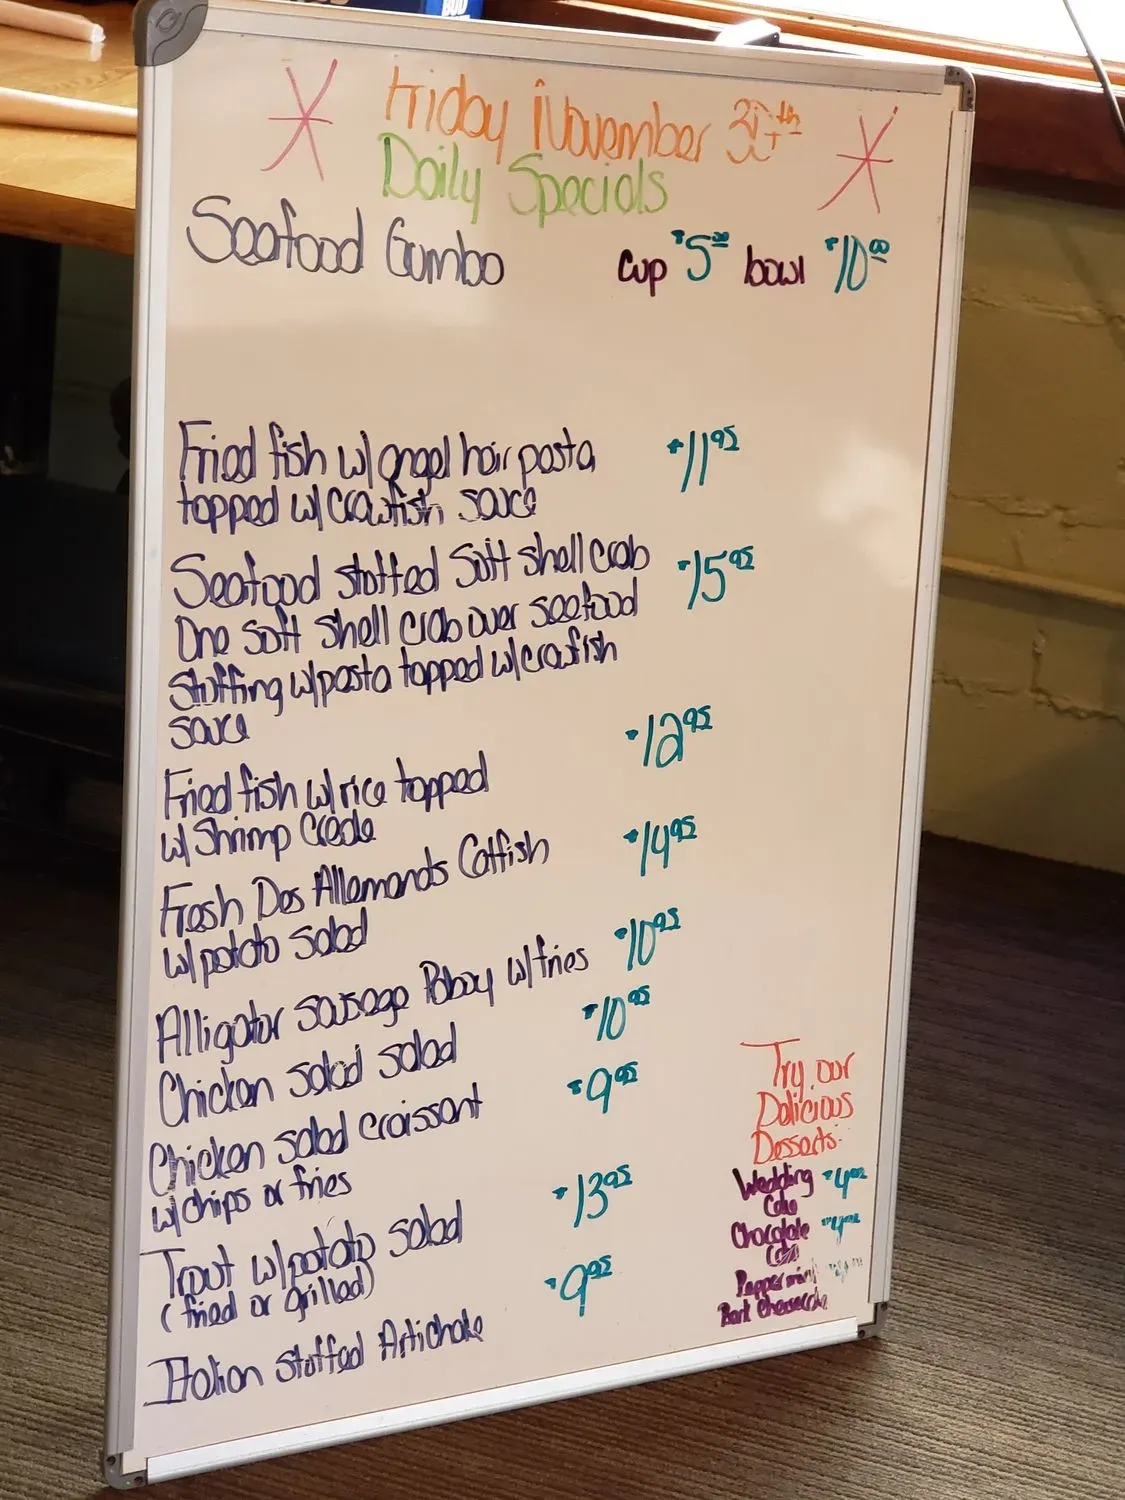 BUD
Friday November 30th
Daily Specials
Seafood Gumbo cup $5.00 bowl $10.00
Fried fish w/ angel hair pasta $11.95
topped w/ crawfish sauce
Seafood stuffed Soft shell crab $15.95
One soft shell crab over seafood
stuffing w/pasta topped w/crafish
sauce
Fried fish w/rice topped $12.95
w/ Shrimp Creole
Fresh Des Allemands Catfish $14.95
w/potato salad
Alligator sausage Poboy w/fries $10.95
Chicken salad salad $10.95
Chicken salad croissant $9.95
w/chips or fries
Trout w/potato salad $13.95
(fried or grilled)
Italian stuffed Artichoke $9.95
Try our
Delicious
Desserts
Wedding $4.00
Cake
Chocolate $4.00
Peppermint
Bark Cheesecake